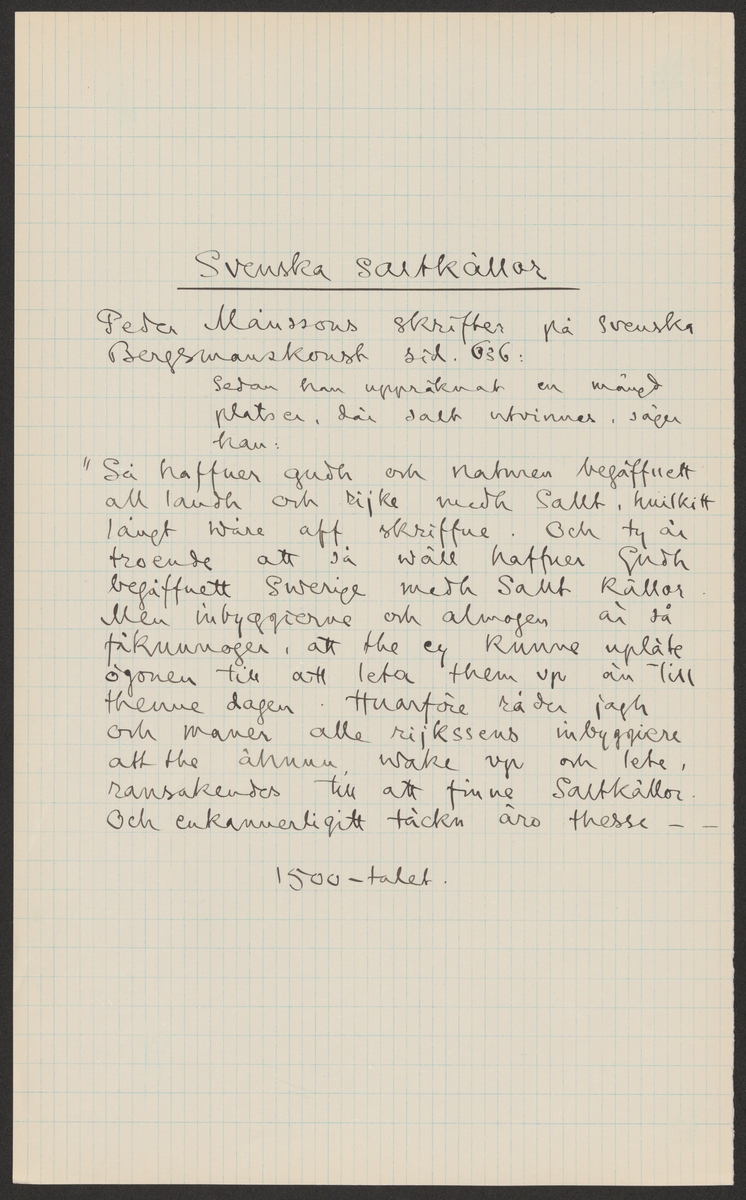 Svenska Saltkällor
Peder Månssons skrifter på Svenska
Bergsmanskonst sid. 636:
Sedan han uppräknat en mängd
platser, där salt utvinnes, säger
han:
"Så haffuer gudh och naturen begåffuett
all landh och rijke medh Sallt, huilkitt
långt wåre aff skriffue. Och ty är
troende att så wäll haffuer Gudh
begåffuett Swerige medh Salltt källor.
Men inbyggierne och almogen är så
fåkunnoger, att the ey kunne uplåte
ögonen till att leta them vp än till
thenne dagen. Huarföre råder jagh
och maner alle rijkssens inbyggiere
att the åhnnu wake vp och lete,
ransakendes till att finne Saltkällor.
Och enkannerligitt täckn äro thesse – –
1500-talet.